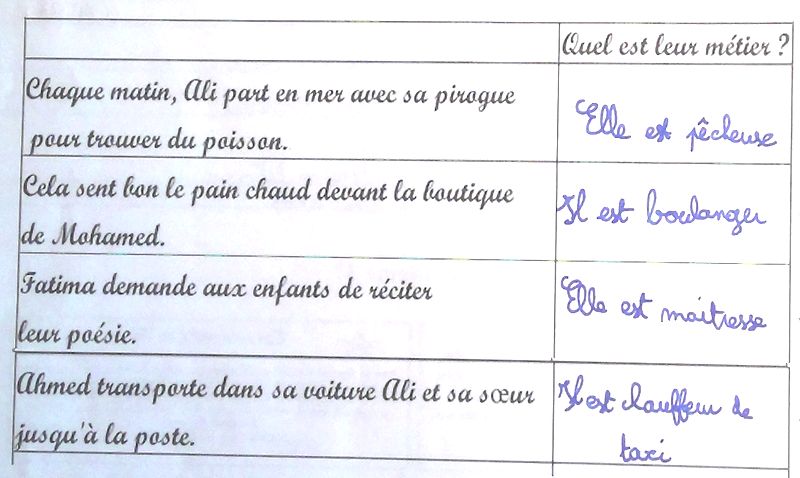 Quel est leur métier ?
Chaque matin, Ali part en mer avec sa pirogue
pour trouver du poisson.
Elle est pêcheuse
Cela sent bon le pain chaud devant la boutique
de Mohamed.
Il est boulanger
Fatima demande aux enfants de réciter
leur poésie.
Elle est maitresse
Ahmed transporte dans sa voiture Ali et sa sœur
jusqu'à la poste.
Il est chauffeur de
taxi